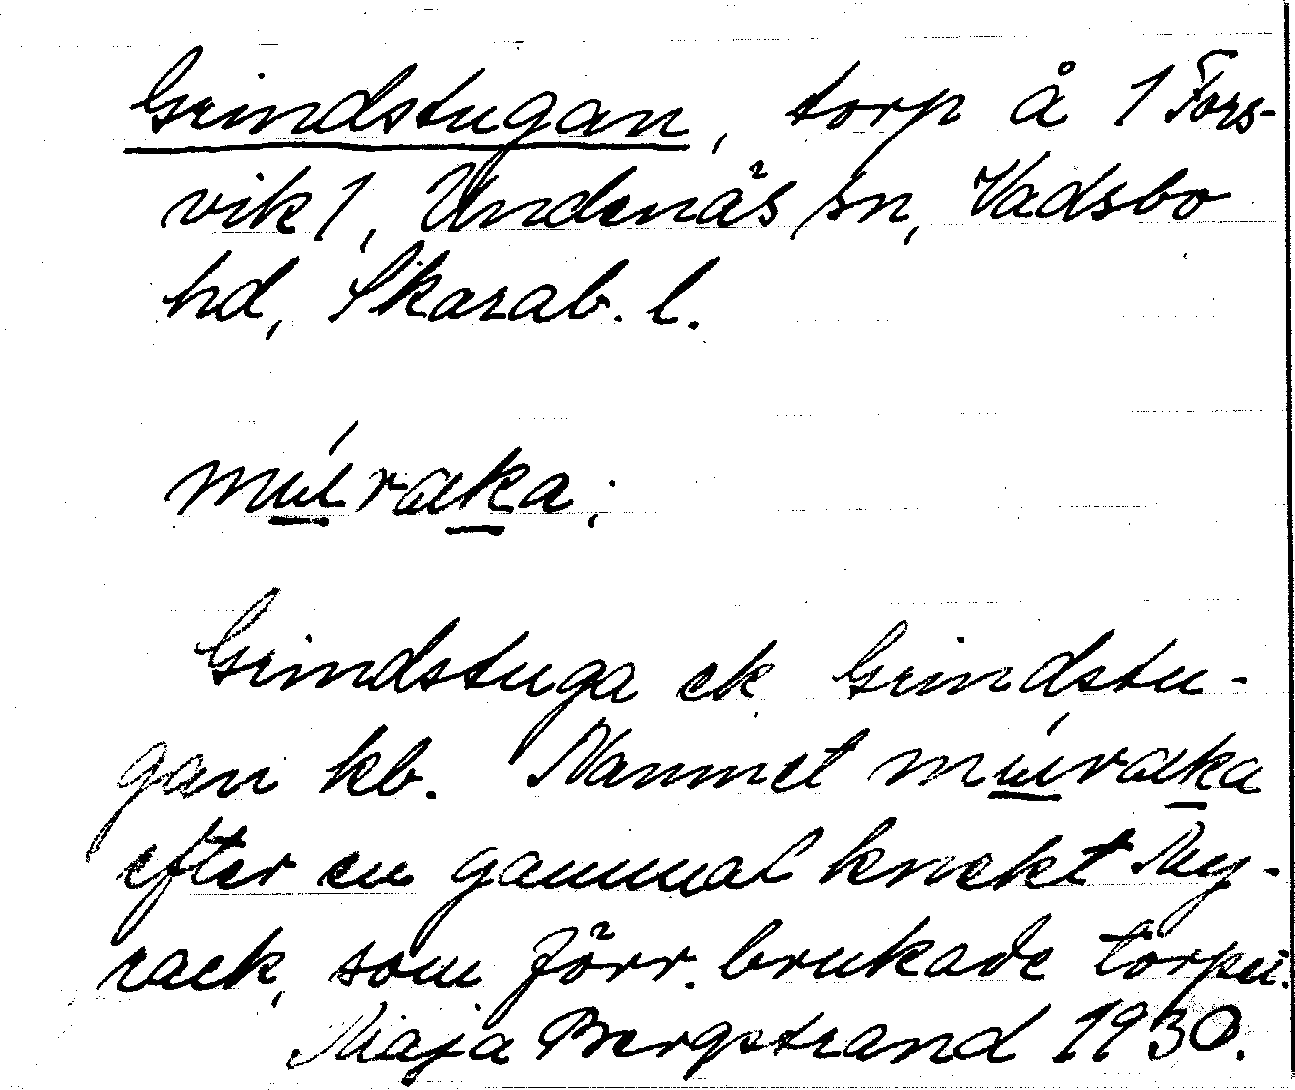 Grindstugan, torp å 1 Fors-
vik 1, Undenäs sn, Vadsbo
hd, Skarab. l.
Grindstuga ek Grindstu-
gan kb. Namnet
efter en gammal knekt My-
rack, som förr brukade torpet.
Maja Bergstrand 1930.